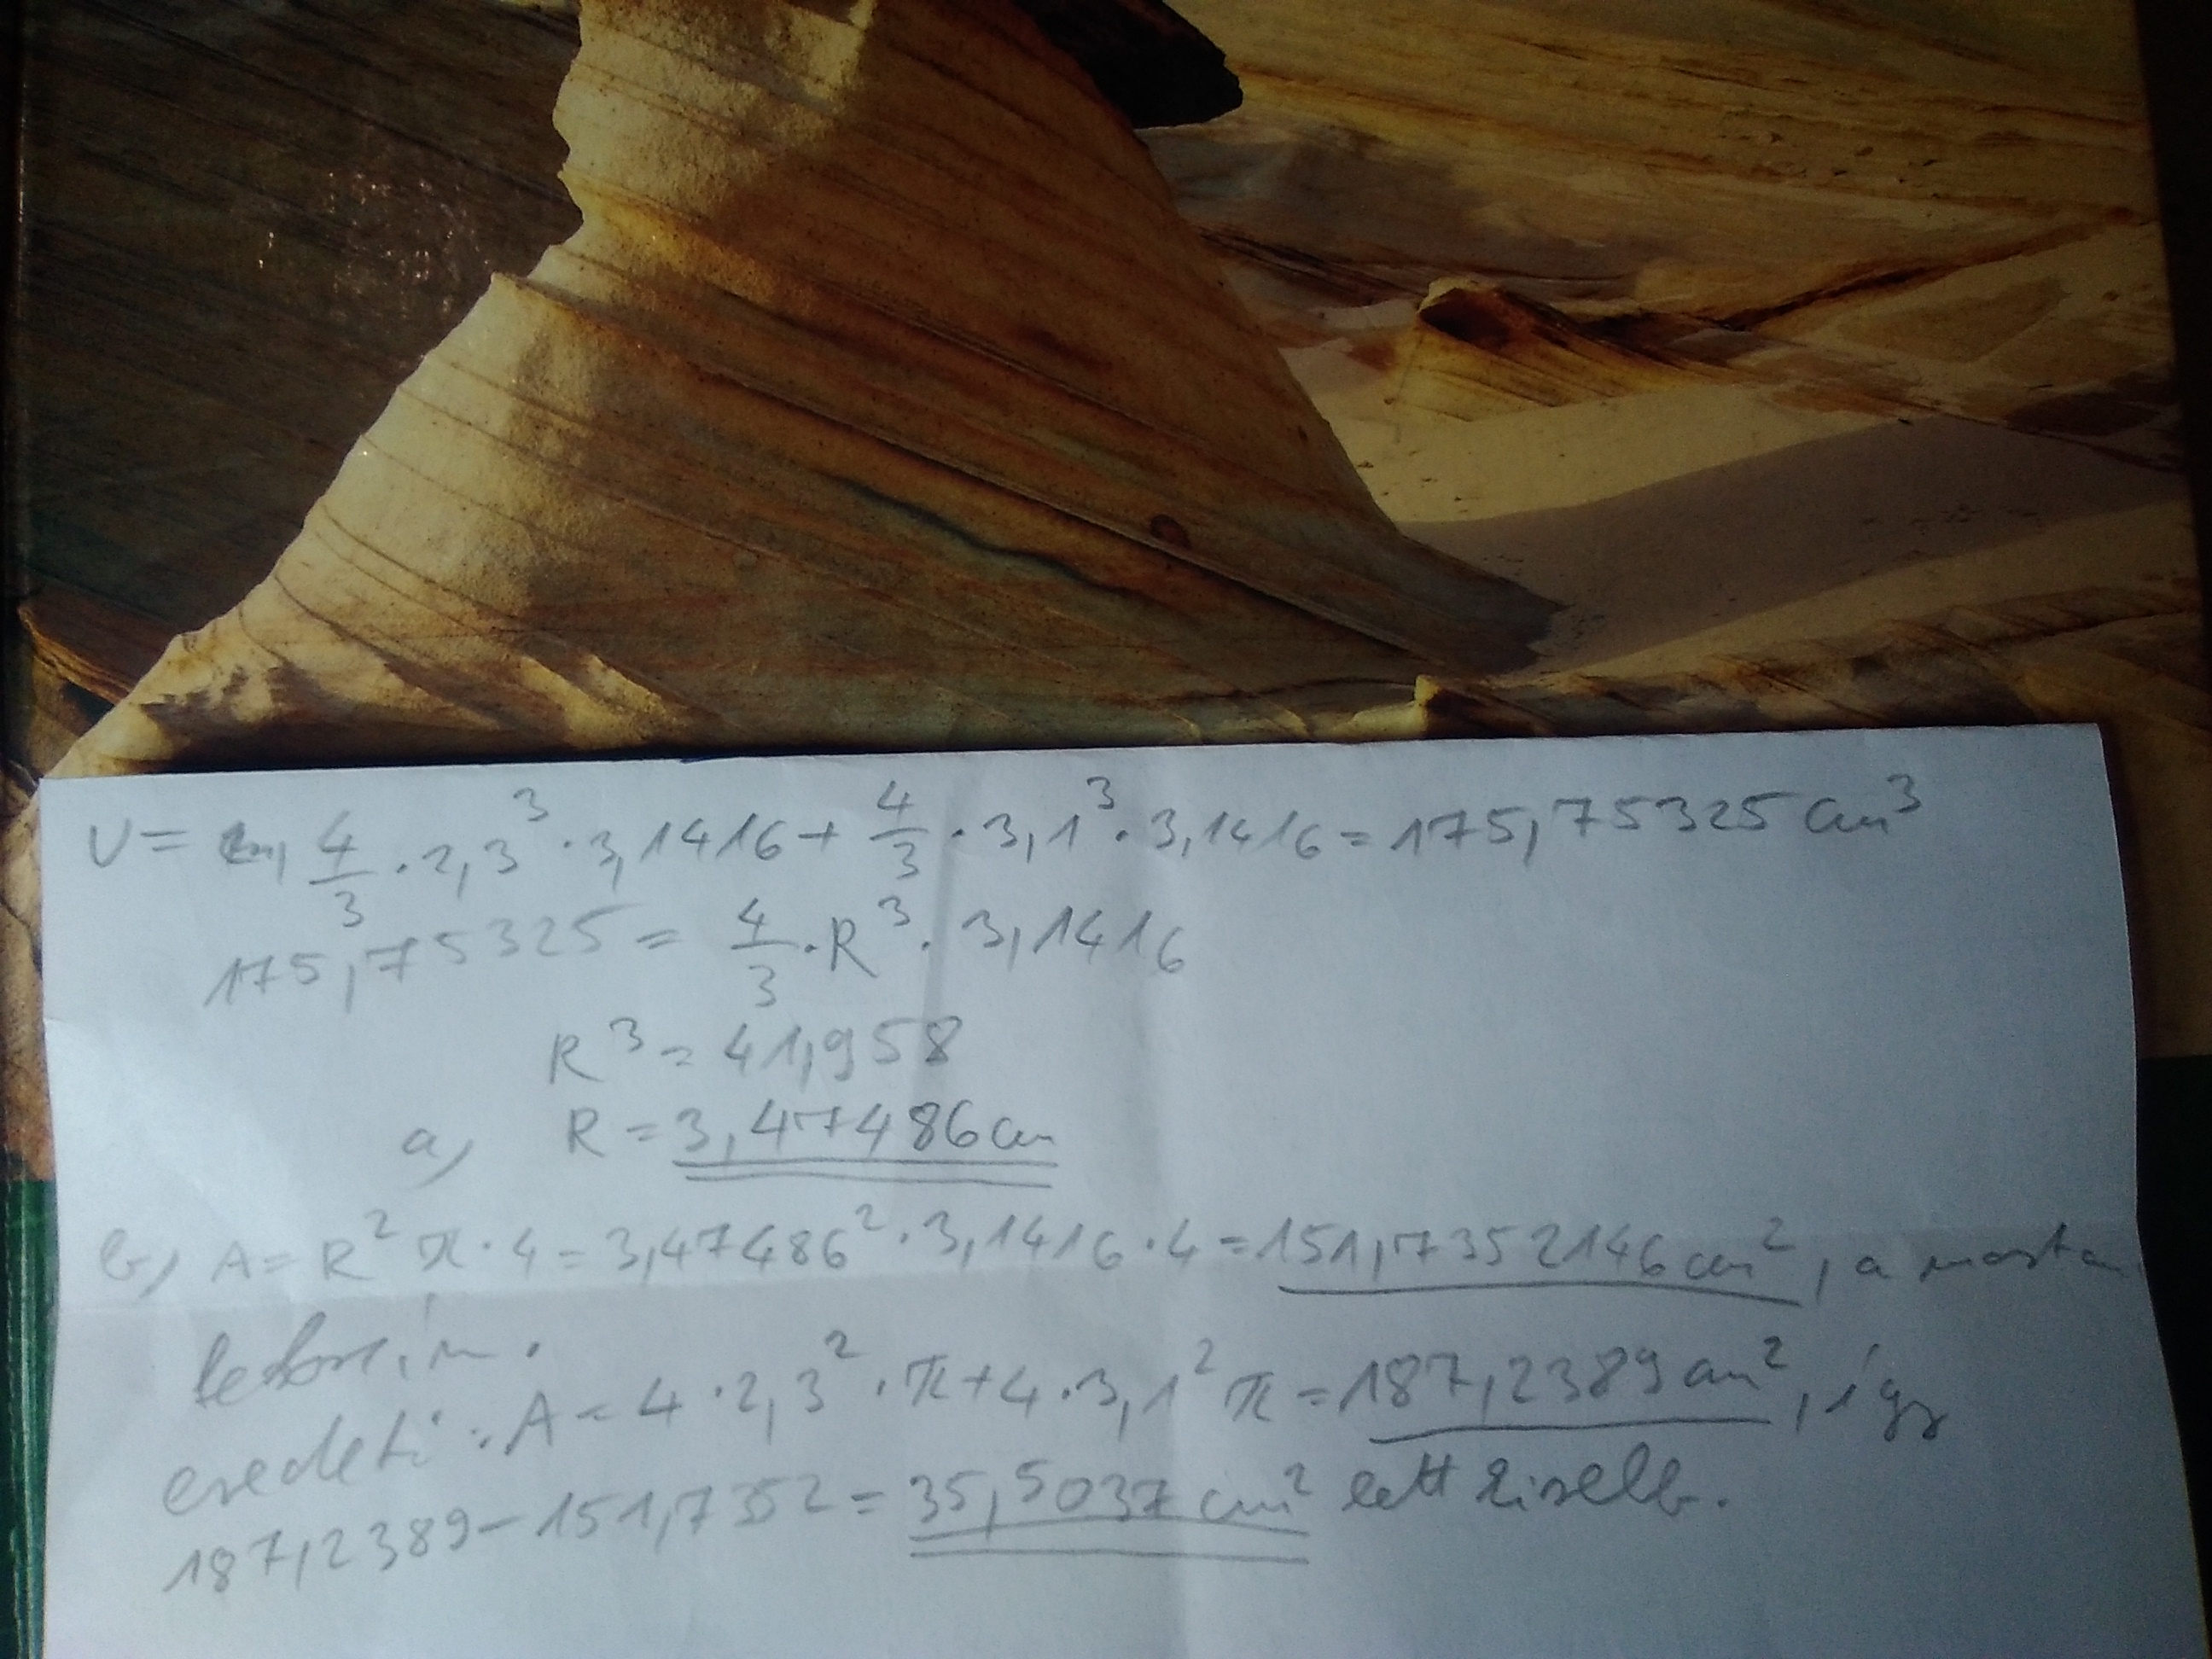 V = 4/3 · 2,3³ · 3,1416 + 4/3 · 3,1³ · 3,1416 = 175,75325 cm³
175,75325 = 4/3 · R³ · 3,1416
R³ = 41,958
a, R = 3,47486 cm
b, A = R² π · 4 = 3,47486² · 3,1416 · 4 = 151,7352146 cm², a
eredeti: A = 4 · 2,3² · π + 4 · 3,1² π = 187,2389 cm², így
187,2389 – 151,7352 = 35,5037 cm² lett kisebb.